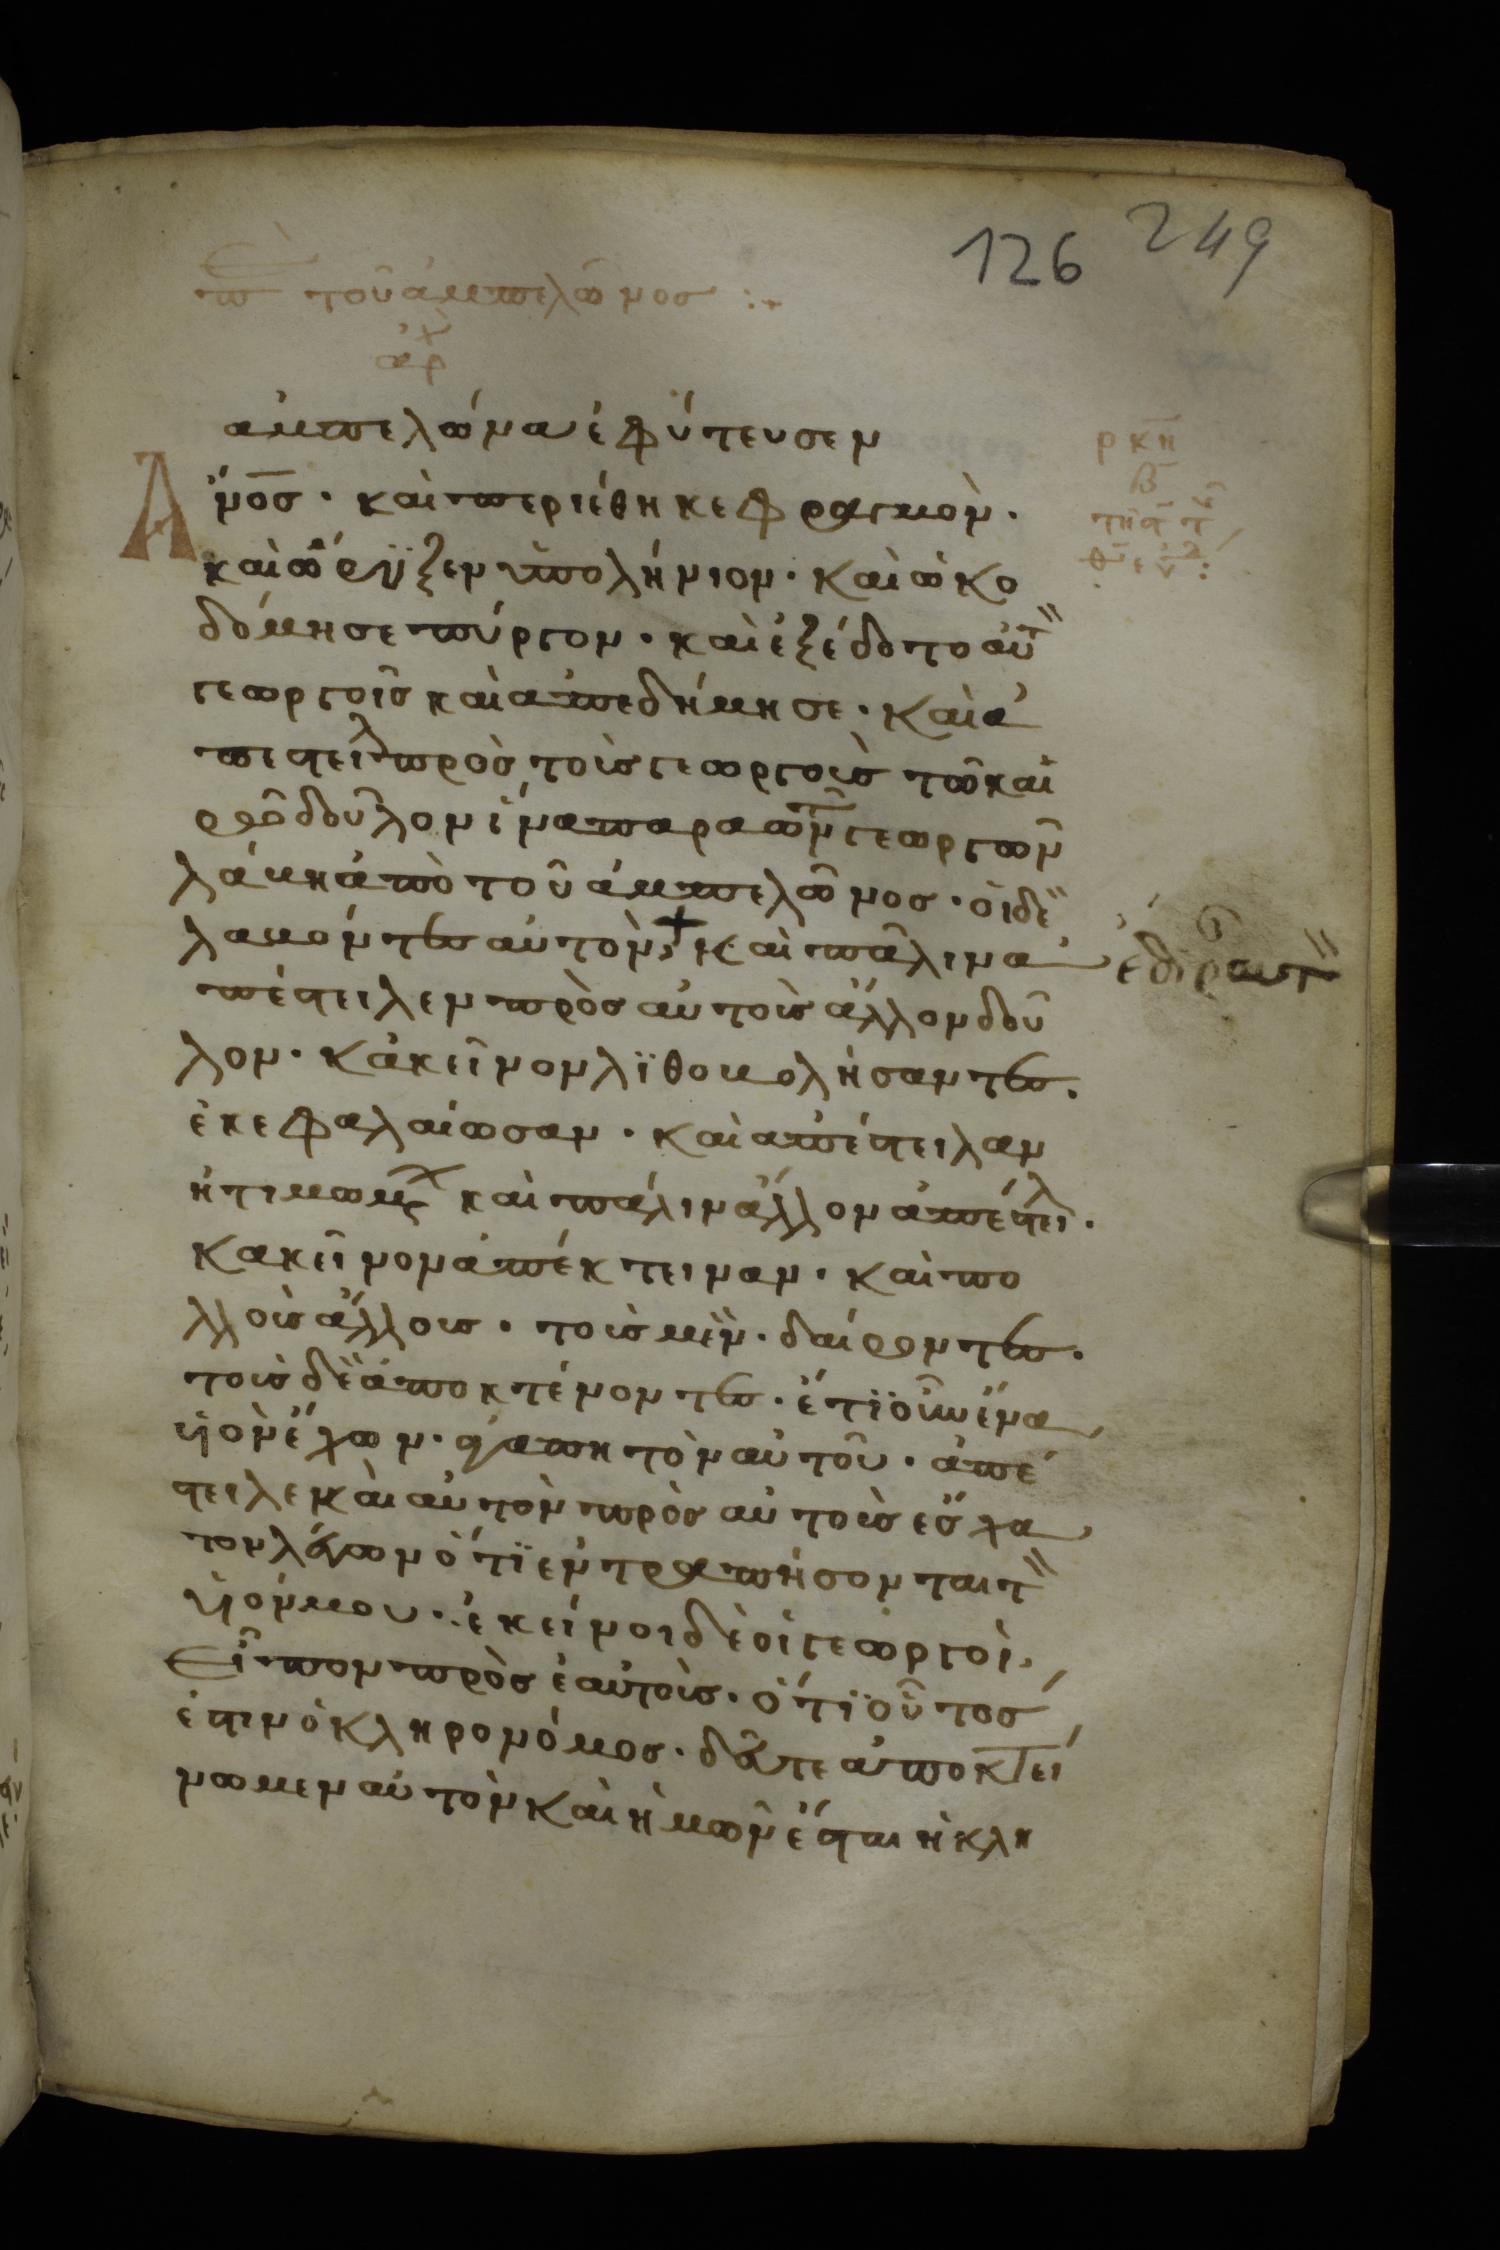 126 249
π τοῦ ἀμπελῶνος :+
ἀρχ
ἀμπελῶνα ἐφύτευσεν
ρκη
β
ἄνο̅ς · καὶ περιέθηκε φραγμὸν ·
καὶ ὤρυξεν ὑπολήνιον · καὶ ὠκο
δόμησε πύργον · καὶ ἐξέδοτο αὐτ
γεωργοῖς καὶ ἀπεδήμησε · καὶ ἀ
πέστειλ πρὸς τοὺς γεωργοὺς τῶ και
ρῶ δοῦλον ἵνα παρα τῶν γεωργῶν
λάβη ἀπὸ τοῦ ἀμπελῶνος · οἱ δὲ
λαβόντες αὐτὸν + καὶ πάλιν ἀ
ἔδιραν
πέστειλεν πρὸς αὐτοὺς ἄλλον δοῦ
λον · κἀκεῖνον λϊθοβολήσαντες ·
ἐκεφαλαίωσαν · καὶ ἀπέστειλαν
ἠτιμωμέν καὶ πάλιν ἄλλον ἀπέστειλ ·
κακεῖνον ἀπέκτειναν · καὶ πο
λλοὺς ἄλλους · τοὺς μὲν · δαίροντες ·
τοὺς δὲ ἀποκτένοντες · ἔτϊ οὖν ἕνα
υἱὸν ἔχων · ἀγαπητὸν αὐτοῦ · ἀπέ
στειλε καὶ αὐτὸν πρὸς αὐτοὺς ἔσχα
τον λέγων ὅτϊ ἐντραπήσονται τ
υἱόν μου · ἐκεῖνοι δὲ οἱ γεωργοὶ ·
εἶπον πρὸς ἑαυτοὺς · ὅτϊ οὗτος
ἐστιν ὁ κληρονόμος · δεῦτε ἀποκτεί
νωμεν αὐτὸν καὶ ἡμῶν ἔσται ἡ κλη